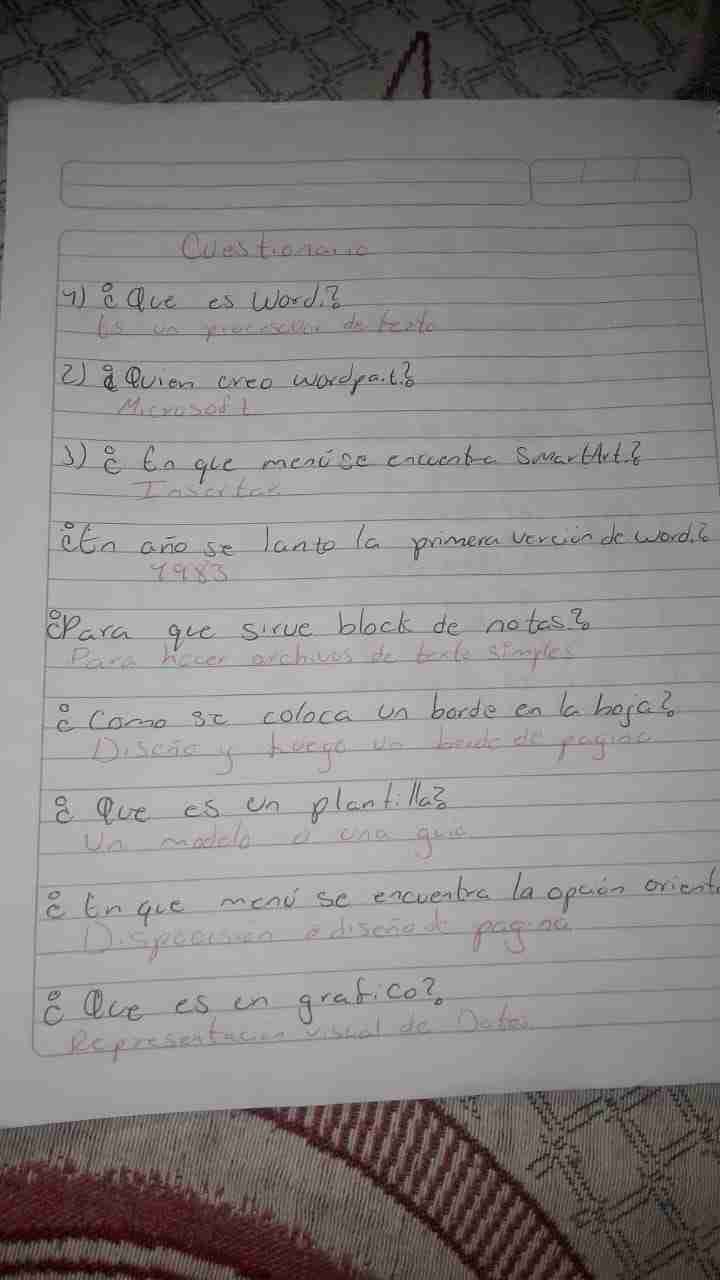 Cuestionario
1) ¿Que es Word.?
Es un procesador de texto
2) ¿Quien creo wordpat.?
Microsoft
3) ¿En que menú se encuentra SmartArt.?
Insertar
¿En año se lanto la primera verción de word.?
1983
¿Para que sirve block de notas?
Para hacer archivos de texto simples
¿Como se coloca un borde en la hoja?
Diseño y luego un borde de pagina
¿Que es un plantilla?
Un modelo o una guia
¿En que menú se encuentra la opción orient
o diseño de pagina
¿Que es un grafico?
Representacion visual de Datos